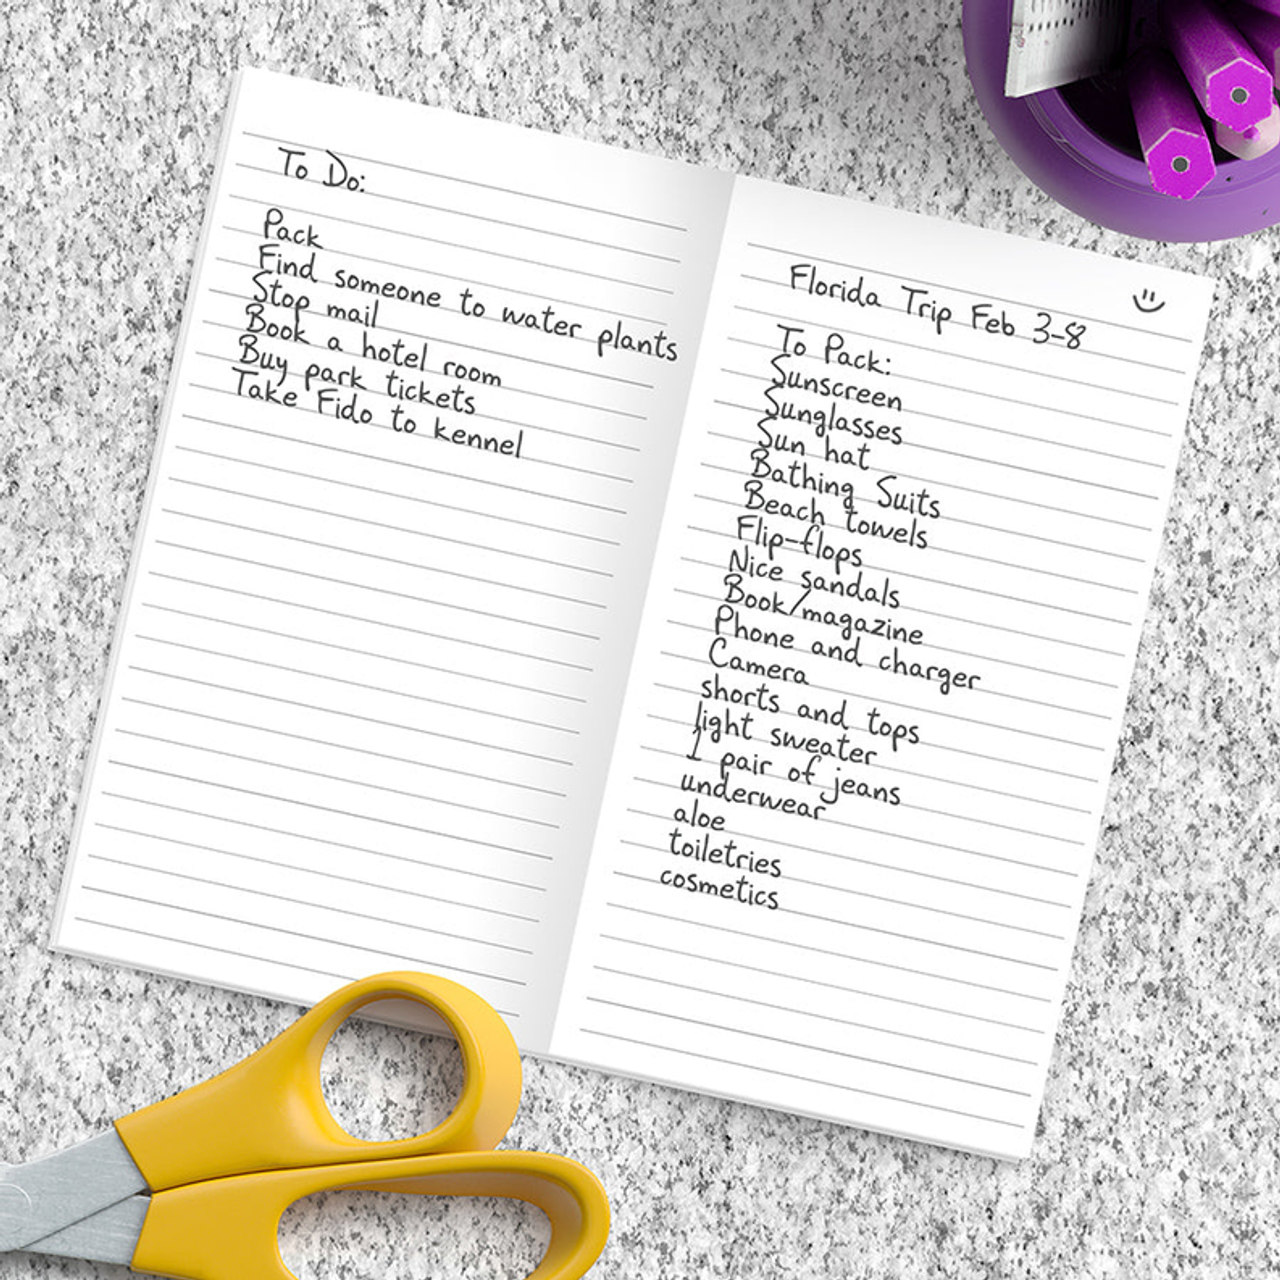 To Do:
Pack
Find someone to water plants
Stop mail
Book a hotel room
Buy park tickets
Take Fido to kennel
Florida Trip Feb 3-8
To Pack:
Sunscreen
Sunglasses
Sun hat
Bathing Suits
Beach towels
Flip-flops
Nice sandals
Book/magazine
Phone and charger
Camera
shorts and tops
light sweater
1 pair of jeans
underwear
aloe
toiletries
cosmetics